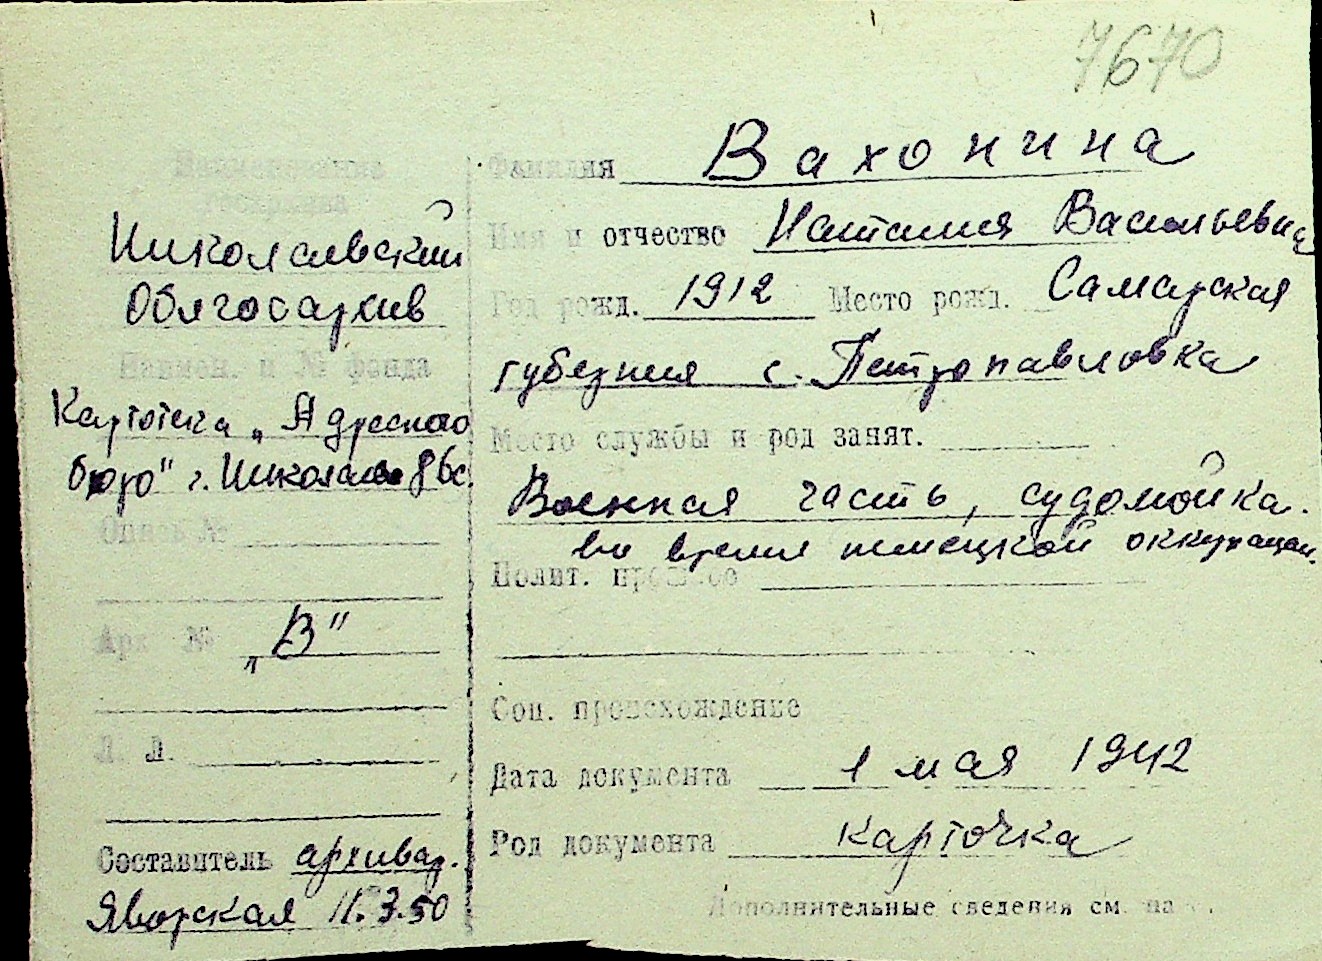 7670
Наименование
госархива
Николаевский
Облгосархив
Наимен. и № фонда
Картотека „Адресного
бюро" г. Николаева
Опись №
Арх №
„В"
Л. Л.
Составитель архивар.
Яворская 11.3.50
Фамилия Вахонина
Имя и отчество Наталия Васильевна
Год рожд. 1912 Место рожд. Самарская
губерния с. Петропавловка
Место службы и род занят.
Военная часть, судомойка.
во время немецкой оккупации.
Полит. прошлое
Соц. происхождение
Дата документа 1 мая 1942
Род документа карточка
Дополнительные сведения см. на